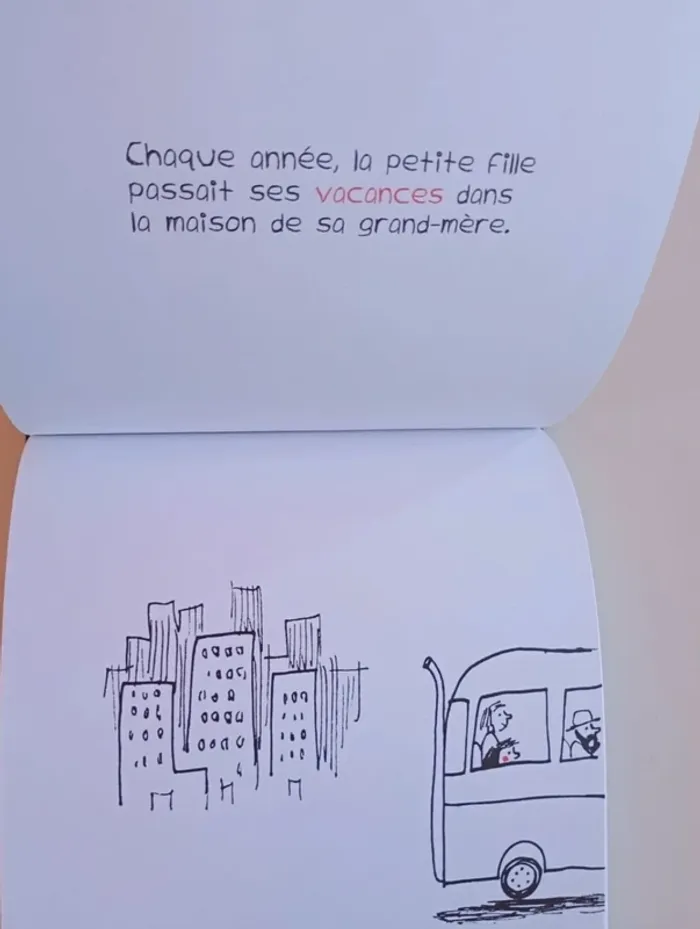 Chaque année, la petite fille
passait ses vacances dans
la maison de sa grand-mère.